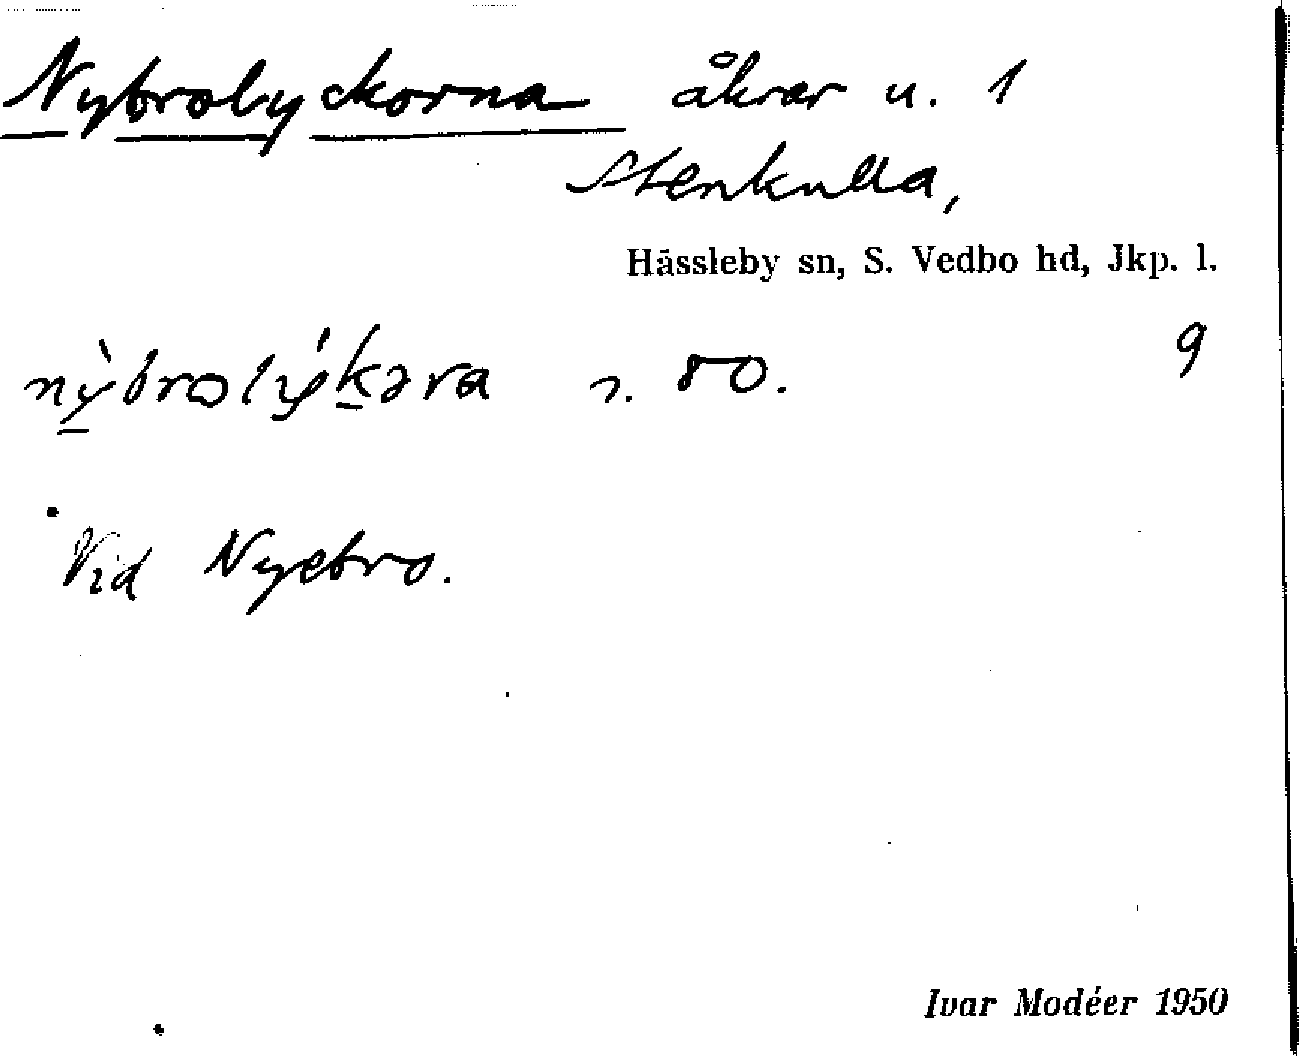 Nybrolyckorna åkrar u. 1
Stenkulla,
Hässleby sn, S. Vedbo hd, Jkp. l.
nỳbrolýkəra n. 80. 9
Vid Nyebro.
Ivar Modéer 1950